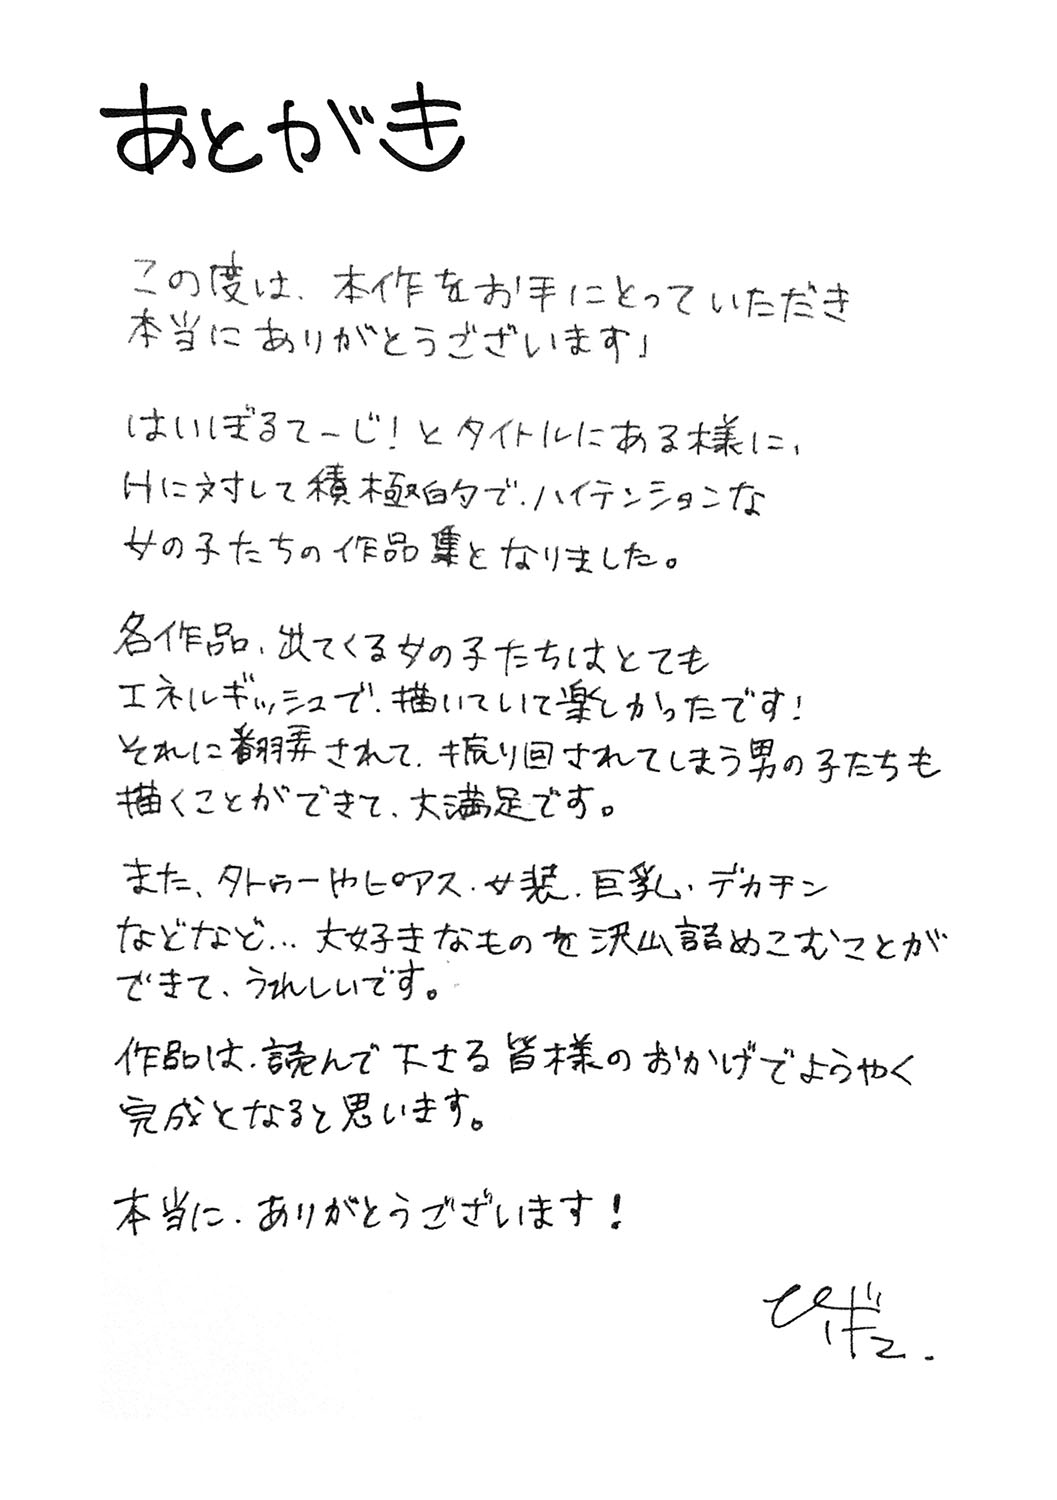 あとがき
この度は、本作をお手にとっていただき
本当にありがとうございます」
はいぼるて〜じ!とタイトルにある様に、
Hに対して積極的で、ハイテンションな
女の子たちの作品集となりました。
各作品、出てくる女の子たちはとても
エネルギッシュで、描いていて楽しかったです!
それに翻弄されて、振り回されてしまう男の子たちも
描くことができて、大満足です。
また、タトゥーやピアス、女装、巨乳、デカチン
などなど…大好きなものを沢山詰めこむことが
できて、うれしいです。
作品は、読んで下さる皆様のおかげでようやく
完成となると思います。
本当に、ありがとうございます!
ひげこ.